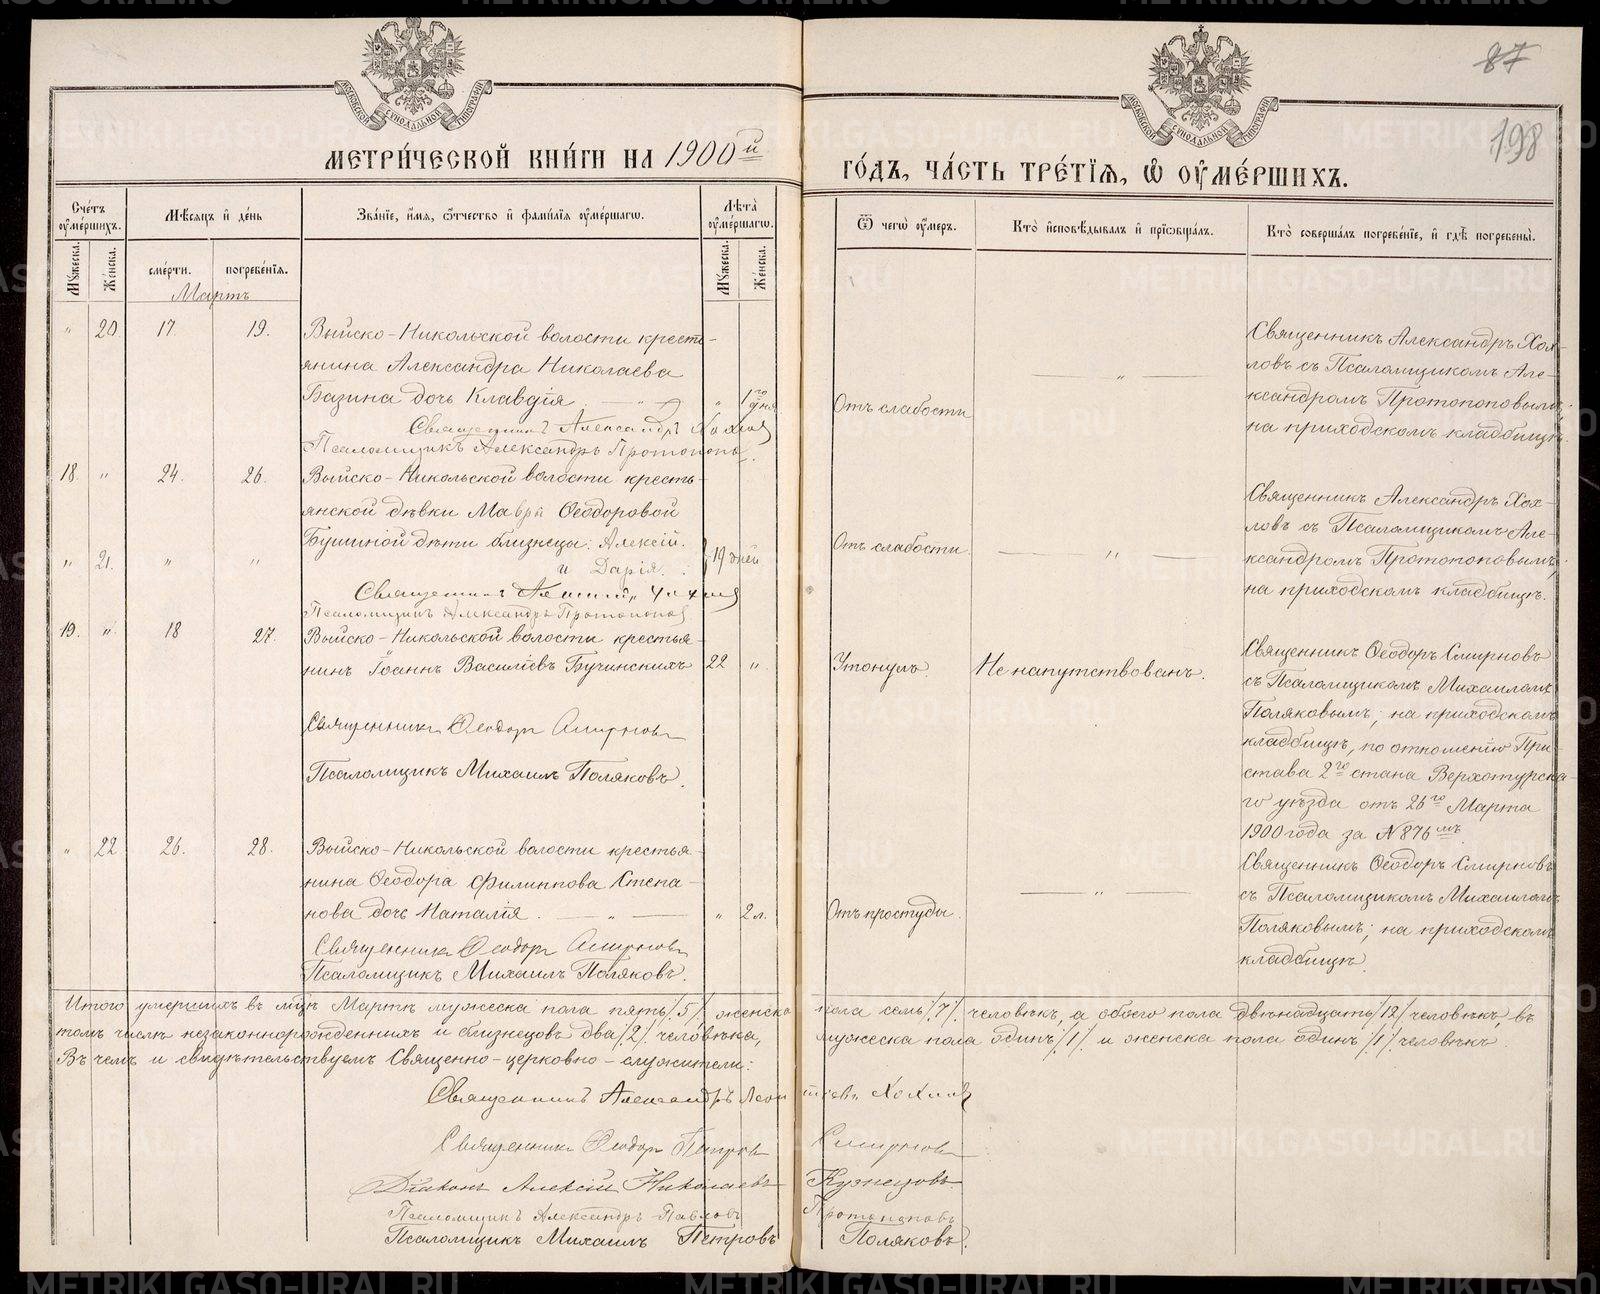 87
198
МЕТРИ́ЧЕСКОЙ КНИ́ГИ НА 1900й ГО́ДЪ, ЧА́СТЬ ТРЕ́ТІѦ, Ѿ ОУМЕ́РШИХЪ.
МОСКОВСКОЙ СѴНОДАЛЬНОЙ ТИПОГРАФІИ
МОСКОВСКОЙ СѴНОДАЛЬНОЙ ТИПОГРАФІИ
Счетъ оумершихъ.
Мужеска.
Женска.
Мѣсяцъ и день
смерти.
погребенія.
Званіе, имя, отчество и фамилія оумершаго.
Лѣта оумершаго.
Мужеска.
Женска.
Ѿ чего оумеръ.
Кто исповѣдывалъ и пріобщалъ.
Кто совершалъ погребеніе, и гдѣ погребены.
Мартъ
" 20 17 19.
Выйско-Никольской волости кресть-
янина Александра Николаева
Базина дочь Клавдія " 1го дня
Священникъ Александръ Хохловъ
Псаломщикъ Александръ Протопоповъ.
Отъ слабости
"
Священникъ Александръ Хох-
ловъ съ Псаломщикомъ Але-
ксандромъ Протопоповымъ;
на приходскомъ кладбищѣ.
18. " 24. 26.
Выйско-Никольской волости кресть-
янской дѣвки Мавры Ѳеодоровой
Бушиной дѣти близнецы: Алексій.
" 21. " "
и Дарія. 19 дней
Священникъ Александръ Хохловъ
Псаломщикъ Александръ Протопоповъ
Отъ слабости.
"
Священникъ Александръ Хох-
ловъ съ Псаломщикомъ Але-
ксандромъ Протопоповымъ;
на приходскомъ кладбищѣ.
19. " 18 27.
Выйско-Никольской волости крестья-
нинъ Іоаннъ Василіевъ Бучинскихъ 22 "
Священникъ Ѳеодоръ Смирновъ
Псаломщикъ Михаилъ Поляковъ.
Утонулъ.
Не напутствованъ.
Священникъ Ѳеодоръ Смирновъ
съ Псаломщикомъ Михаиломъ
Поляковымъ; на приходскомъ
кладбищѣ, по отношенію При-
става 2го стана Верхотурска-
го уѣзда отъ 26го Марта
1900 года за №876мъ
" 22 26. 28.
Выйско-Никольской волости крестья-
нина Ѳеодора Филиппова Степа-
нова дочь Наталія. " " 2 л.
Священникъ Ѳеодоръ Смирновъ
Псаломщикъ Михаилъ Поляковъ.
Отъ простуды.
"
Священникъ Ѳеодоръ Смирновъ
съ Псаломщикомъ Михаиломъ
Поляковымъ; на приходскомъ
кладбищѣ.
Итого умершихъ въ мцѣ Мартѣ мужеска пола пять /5/, женска пола семь /7/ человѣкъ, а обоего пола двѣнадцать /12/ человѣкъ, въ
томъ числѣ незаконнорожденныхъ и близнецовъ два /2/ человѣка, мужеска пола одинъ /1/ и женска пола одинъ /1/ человѣкъ.
Въ чемъ и свидѣтельствуемъ Священно-церковно-служители:
Священникъ Александръ Леонтіевъ Хохловъ
Священникъ Ѳеодоръ Петровъ Смирновъ
Діаконъ Алексій Николаевъ Кузнецовъ
Псаломщикъ Александръ Павловъ Протопоповъ
Псаломщикъ Михаилъ Петровъ Поляковъ.
METRIKI.GASO-URAL.RU